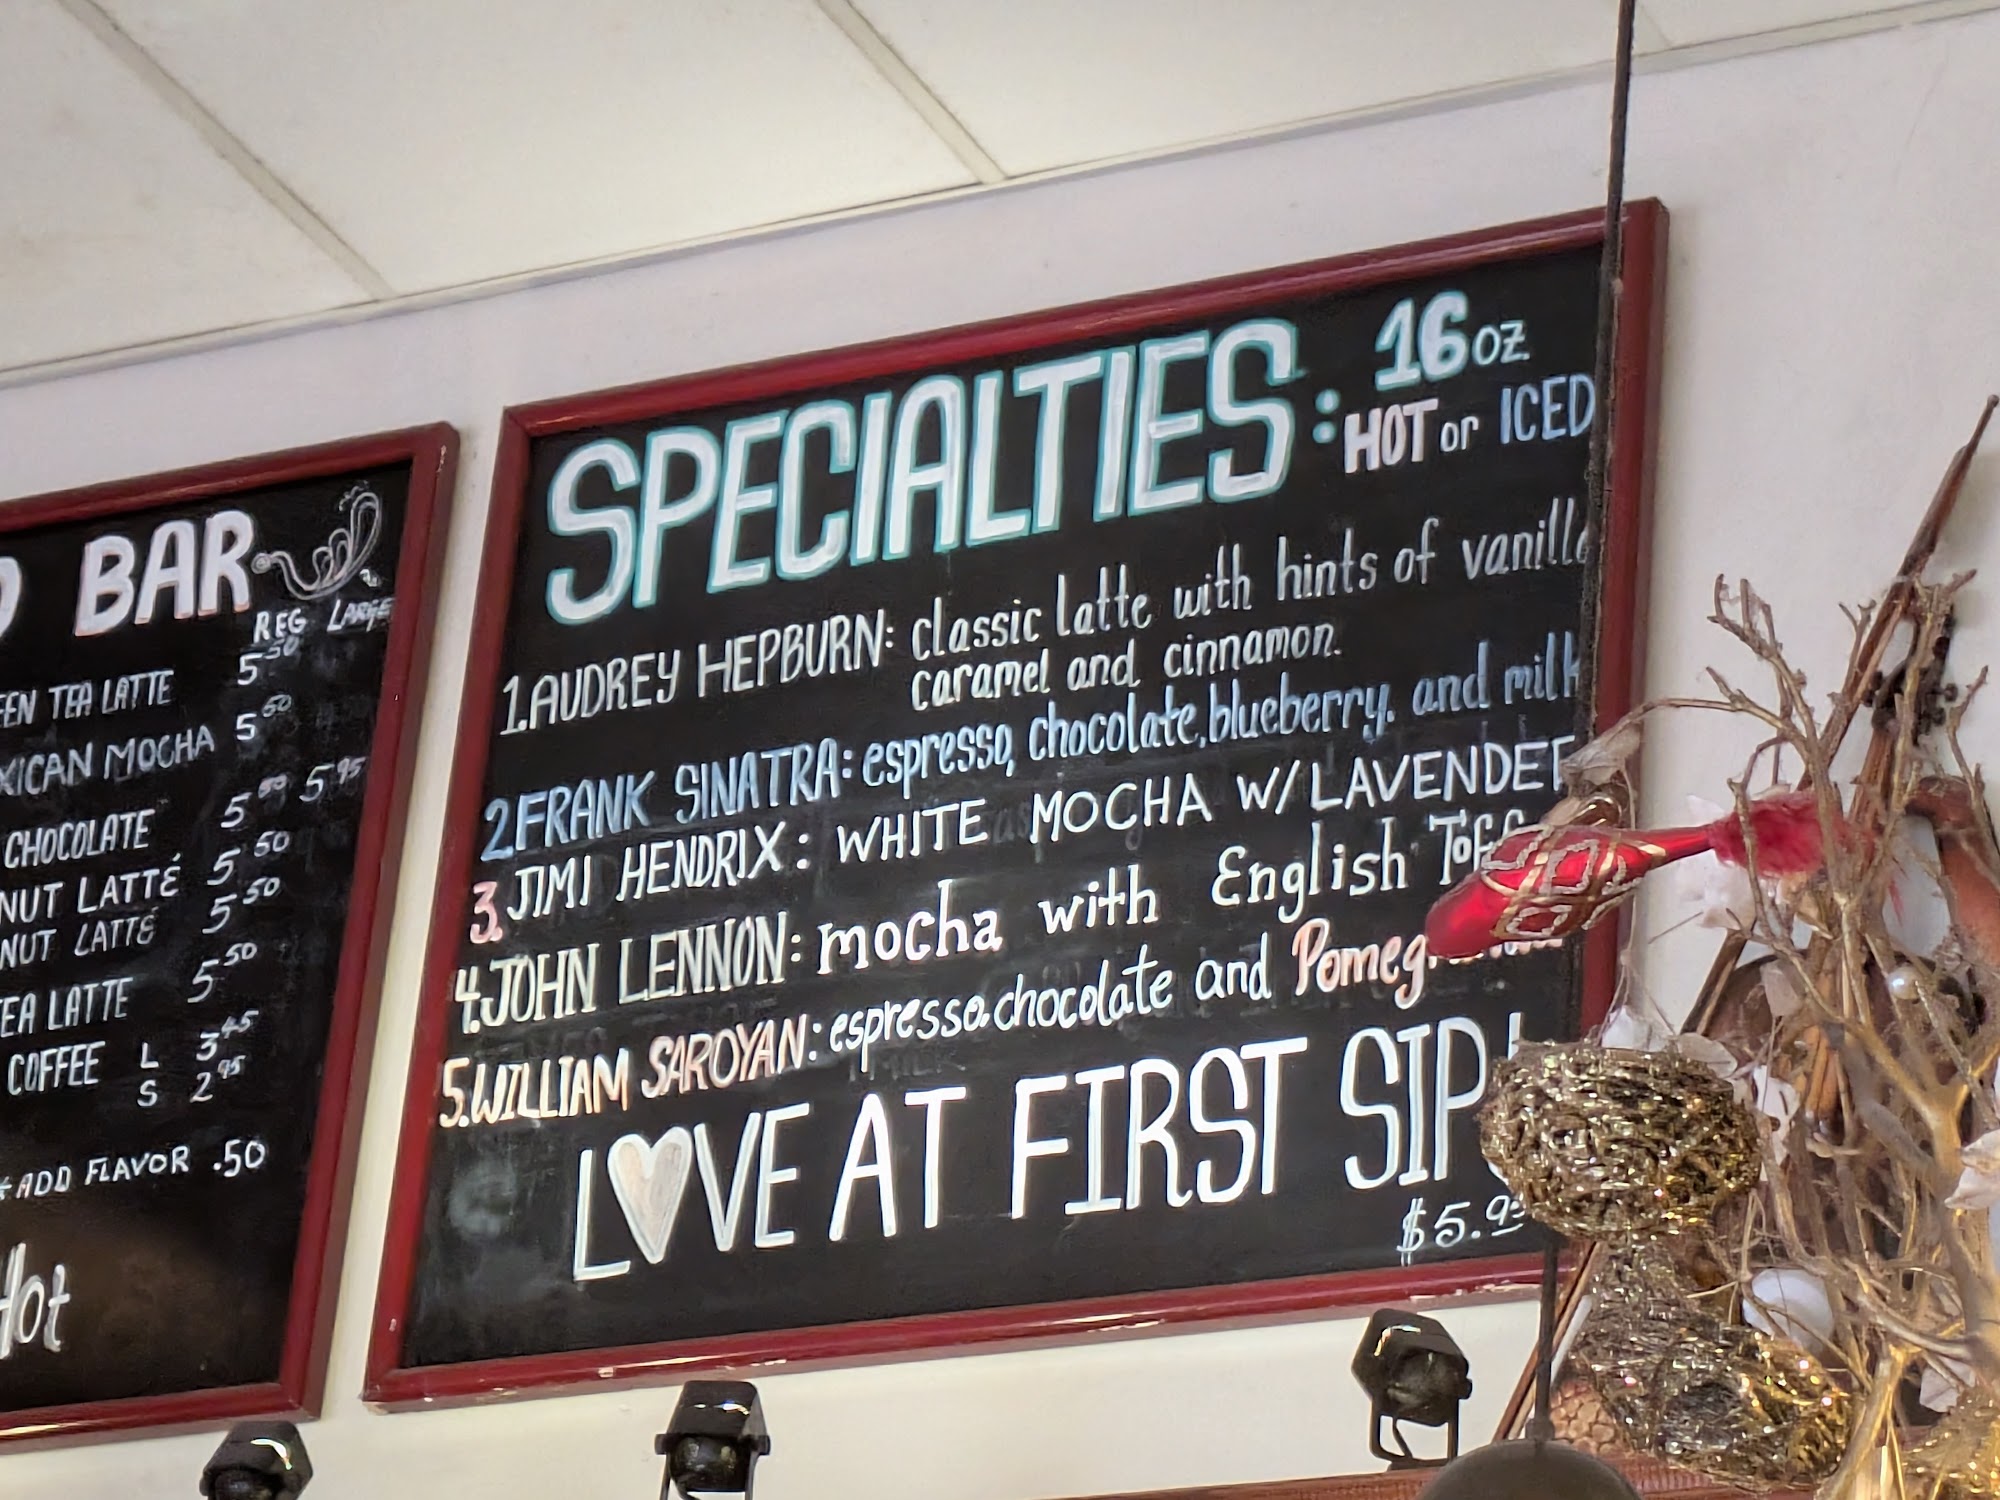 BAR
REG LARGE
TEA LATTE 5.50
MOCHA 5.50
CHOCOLATE 5.50 5.95
NUT LATTÉ 5.50
NUT LATTÉ 5.50
LATTE 5.50
COFFEE L 3.45
S 2.95
ADD FLAVOR .50
Hot
SPECIALTIES: 16 oz
HOT or ICED
1. AUDREY HEPBURN: classic latte with hints of vanilla
caramel and cinnamon.
2. FRANK SINATRA: espresso, chocolate, blueberry. and milk
3. JIMI HENDRIX: WHITE MOCHA W/ LAVENDER
4. JOHN LENNON: mocha with English
5. WILLIAM SAROYAN: espresso. chocolate and
LOVE AT FIRST SIP!
$5.95